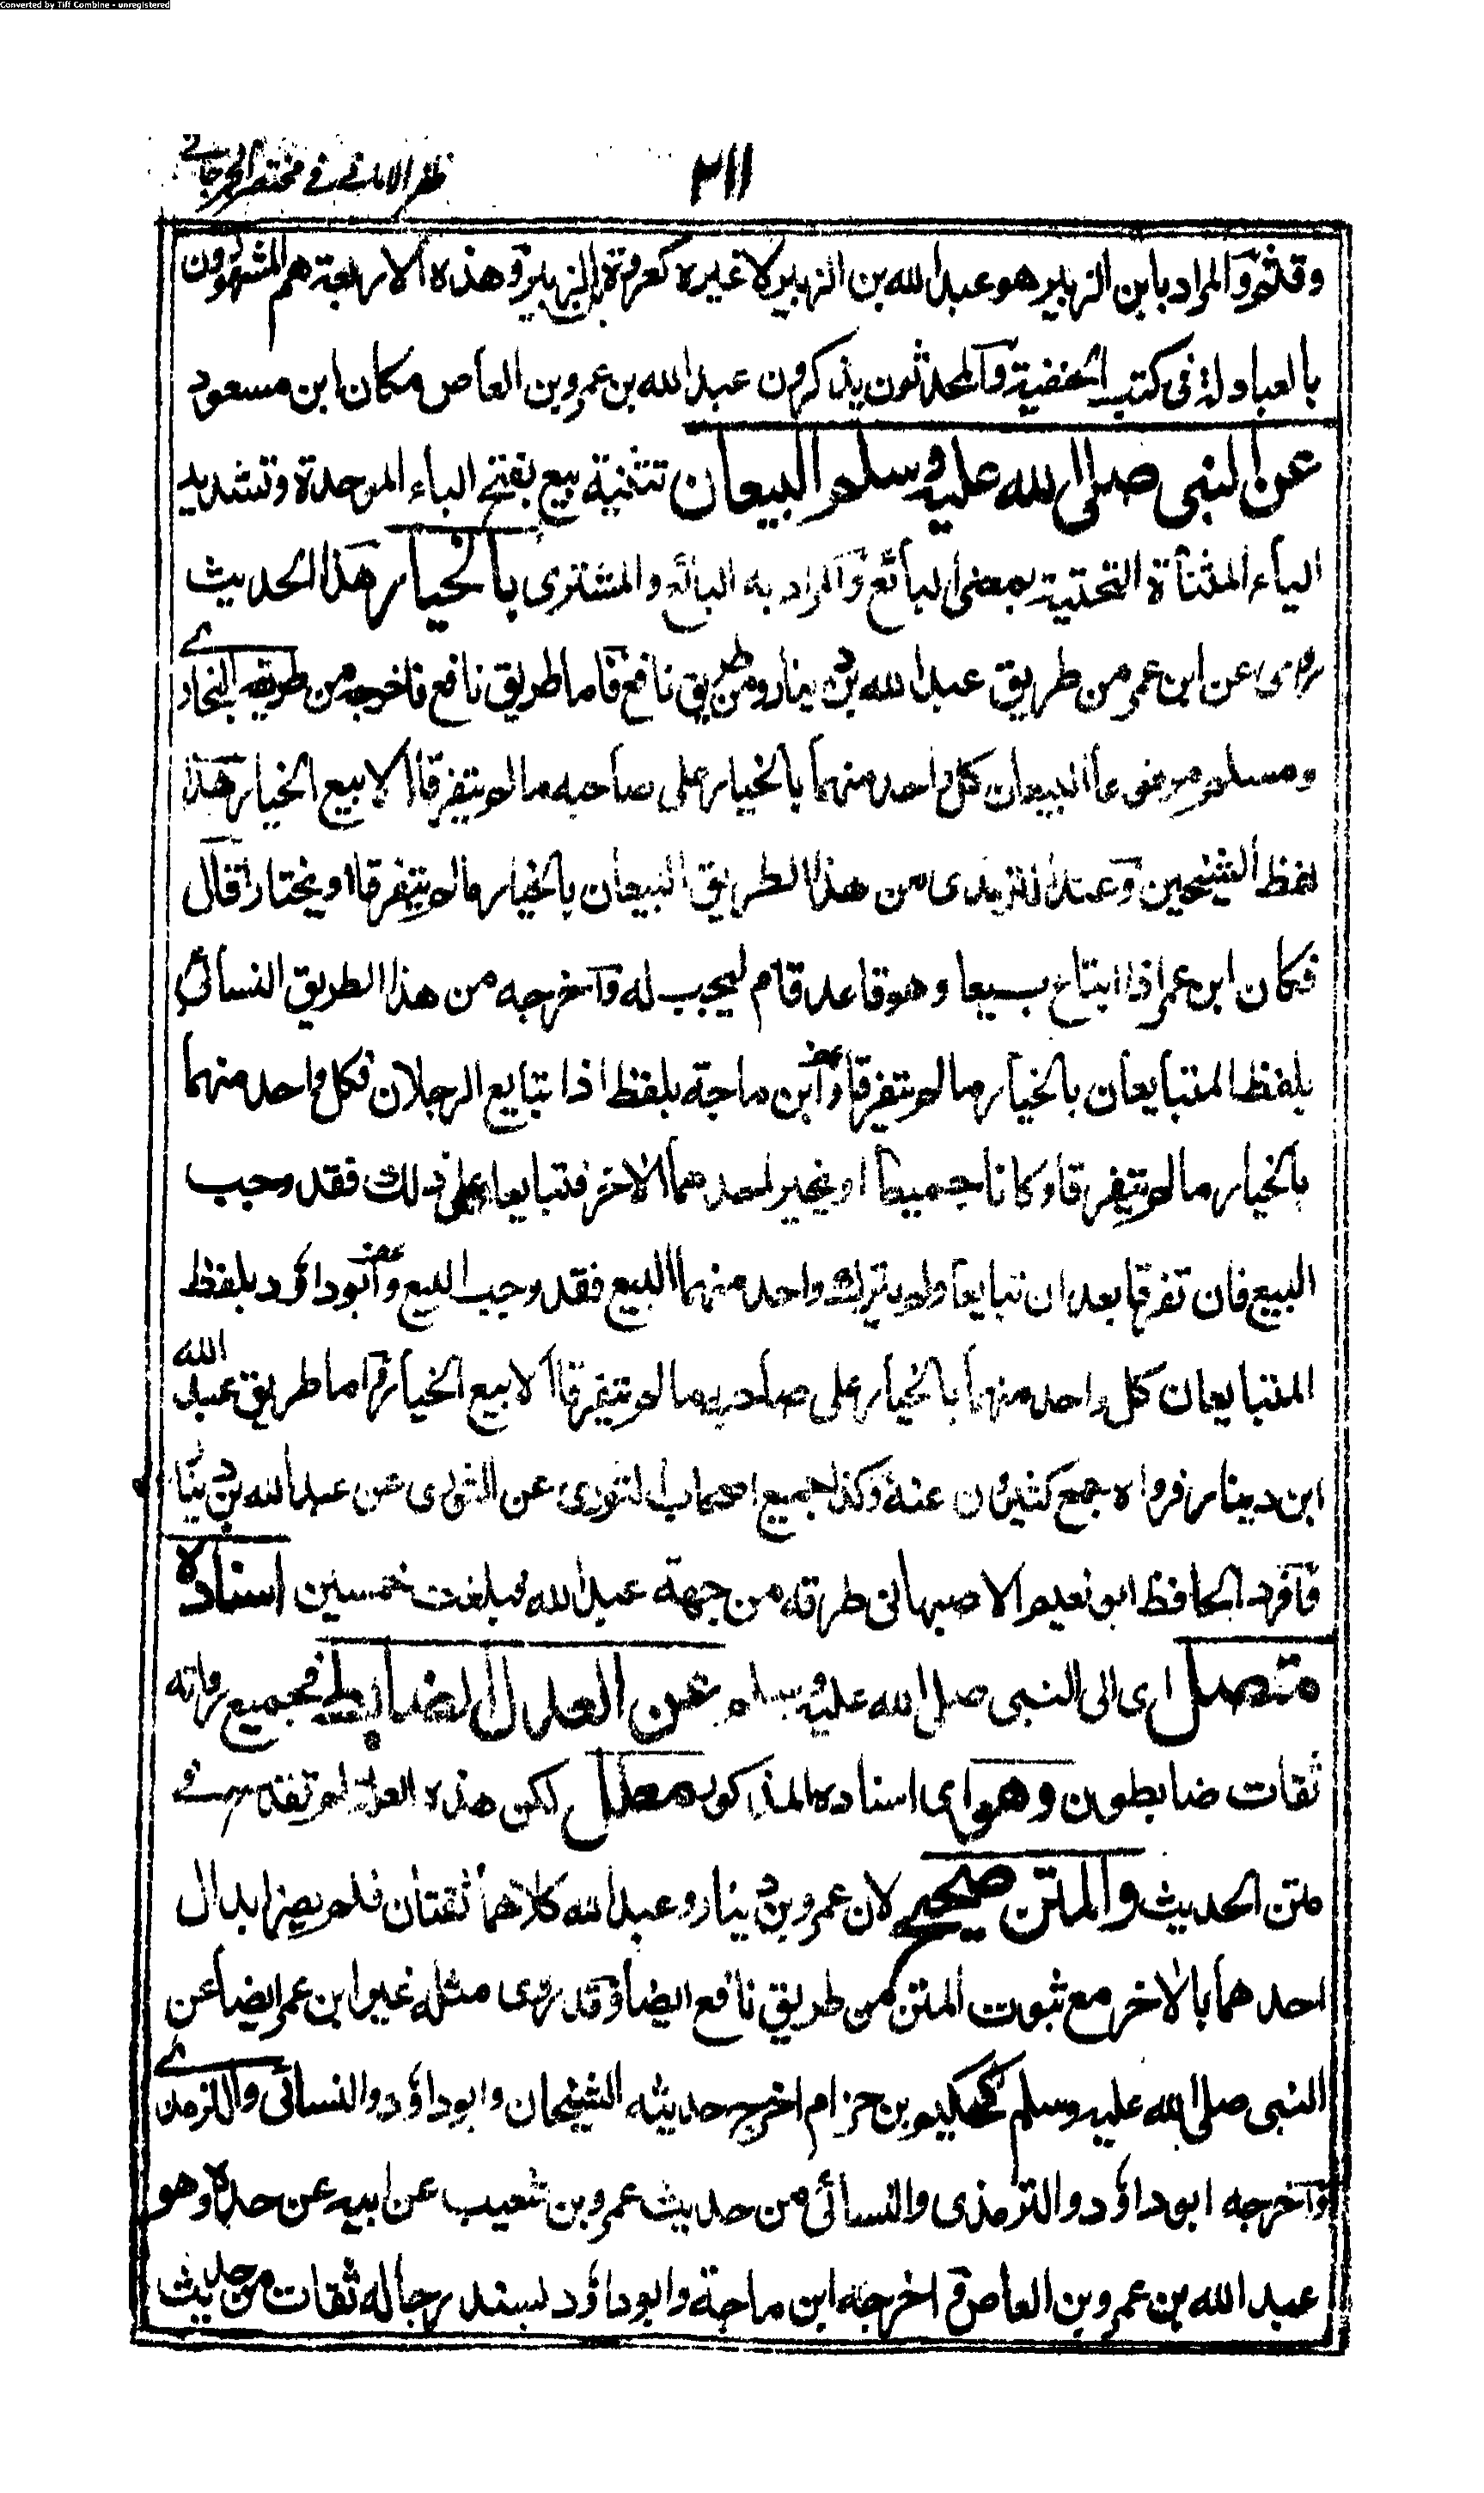 Converted by Tiff Combine - unregistered
٢١١
ظفر الامانی فی مختصر الجرجانی
وقثم والمراد بابن الزبیر هو عبد الله بن الزبیر لا غیره کعروة بن الزبیر وهذه الاربعة هم المشهورون
بالعبادلة فی کتب الحنفیة والمحدثون یذکرون عبد الله بن عمرو بن العاص مکان ابن مسعود
عن النبی صلی الله علیه وسلم البیعان تثنیة بیع بفتح الباء الموحدة وتشدید
الیاء المثناة التحتیة بمعنی البائع والمراد به البائع والمشتری بالخیار هذا الحدیث
روی عن ابن عمر من طریق عبد الله بن دینار ومن طریق نافع فاما طریق نافع فاخرجه من طریقه البخاری
ومسلم مرفوعا البیعان کل واحد منهما بالخیار علی صاحبه ما لم یتفرقا الا بیع الخیار هذا
لفظ الشیخین وعند الترمذی من هذا الطریق البیعان بالخیار ما لم یتفرقا او یختارا قال
فکان ابن عمر اذا ابتاع بیعا وهو قاعد قام لیجب له واخرجه من هذا الطریق النسائی
بلفظ المتبایعان بالخیار ما لم یتفرقا وابن ماجة بلفظ اذا تبایع الرجلان فکل واحد منهما
بالخیار ما لم یتفرقا وکانا جمیعا او یخیر احدهما الاخر فتبایعا علی ذلك فقد وجب
البیع فان تفرقا بعد ان تبایعا ولم یترك واحد منهما البیع فقد وجب البیع وابو داؤد بلفظ
المتبایعان کل واحد منهما بالخیار علی صاحبه ما لم یتفرقا الا بیع الخیار واما طریق عبد الله
ابن دینار فرواه جمع کثیرون عنه وکذا جمیع اصحاب الثوری عن الثوری عن عبد الله بن دینا
وافرد الحافظ ابو نعیم الاصبهانی طرقه من جهة عبد الله فبلغت خمسین اسناده
متصل ای الی النبی صلی الله علیه وسلم عن العدل الضابط فجمیع رواته
ثقات ضابطون وهو ای اسناده المذکور معلل لکن هذه العلة لم تقدح فی
متن الحدیث والمتن صحیح لان عمرو بن دینار وعبد الله کلاهما ثقتان فلم یضر ابدال
احدهما بالاخر مع ثبوت المتن من طریق نافع ایضا وقد روی مثله غیر ابن عمر ایضا عن
النبی صلی الله علیه وسلم کحکیم بن حزام اخرج حدیثه الشیخان وابو داؤد والنسائی والترمذی
واخرجه ابو داؤد والترمذی والنسائی من حدیث عمرو بن شعیب عن ابیه عن جده وهو
عبد الله بن عمرو بن العاص واخرجه ابن ماجة وابو داؤد بسند رجاله ثقات من حدیث